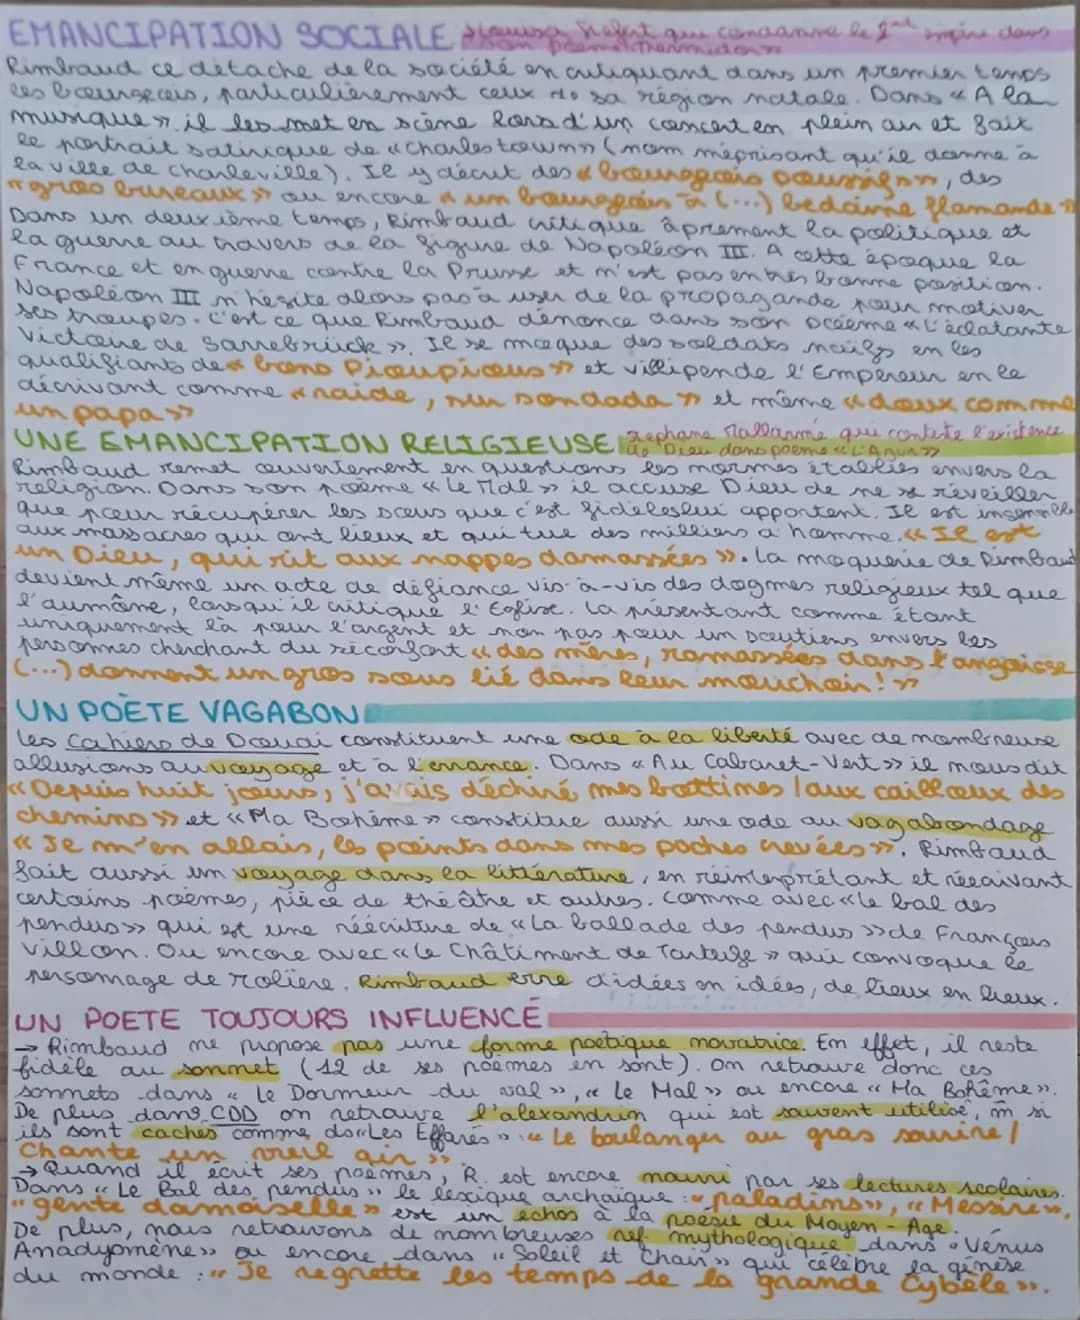 EMANCIPATION SOCIALE Louisa Siefert qui condamne le 2nd empire dans
son poème "Thermidor"
Rimbaud ce détache de la société en critiquant dans un premier temps
les bourgeois, particulièrement ceux de sa région natale. Dans « A la
musique », il les met en scène lors d'un concert en plein air et fait
le portrait satirique de « Charlestown » (nom méprisant qu'il donne à
la ville de Charleville). Il y décrit des « bourgeois poussifs », des
« gros bureaux » ou encore « un bourgeois à (...) bedaine flamande »
Dans un deuxième temps, Rimbaud critique âprement la politique et
la guerre au travers de la figure de Napoléon III. A cette époque la
France et en guerre contre la Prusse et n'est pas en très bonne position.
Napoléon III n'hésite alors pas à user de la propagande pour motiver
ses troupes. C'est ce que Rimbaud dénonce dans son poème « L'éclatante
Victoire de Sarrebrück ». Il se moque des soldats naïfs en les
qualifiants de « bons Pioupious » et vilipende l'Empereur en le
décrivant comme « raide, sur son dada » et même « doux comme
un papa »
UNE EMANCIPATION RELIGIEUSE Stephane Mallarmé qui conteste l'existence
de Dieu dans poème « L'Azur »
Rimbaud remet ouvertement en questions les normes établies envers la
religion. Dans son poème « Le Mal » il accuse Dieu de ne se réveiller
que pour récupérer les sous que c'est fidèles lui apportent. Il est insensible
aux massacres qui ont lieux et qui tue des milliers d'homme. « Il est
un Dieu, qui rit aux nappes damassées ». La moquerie de Rimbaud
devient même un acte de défiance vis-à-vis des dogmes religieux tel que
l'aumône, lorsqu'il critique l'Eglise. La présentant comme étant
uniquement là pour l'argent et non pas pour un soutiens envers les
personnes cherchant du réconfort « des mères, ramassées dans l'angoisse
(...) donnent un gros sous lié dans leur mouchoir! »
UN POÈTE VAGABON
Les Cahiers de Douai constituent une ode à la liberté avec de nombreuse
allusions au voyage et à l'errance. Dans « Au Cabaret-Vert » il nous dit
« Depuis huit jours, j'avais déchiré mes bottines / aux cailloux des
chemins » et « Ma Bohème » constitue aussi une ode au vagabondage
« Je m'en allais, les points dans mes poches crevées ». Rimbaud
fait aussi un voyage dans la littérature, en réinterprétant et réécrivant
certains poèmes, pièce de théâtre et autres. Comme avec « le bal des
pendus » qui est une réécriture de « La ballade des pendus » de François
Villon. Ou encore avec « le Châtiment de Tartufe » qui convoque le
personnage de Molière. Rimbaud erre d'idées en idées, de lieux en lieux.
UN POETE TOUJOURS INFLUENCÉ
→ Rimbaud ne propose pas une forme poétique novatrice. En effet, il reste
fidèle au sonnet (12 de ses poèmes en sont). On retrouve donc ces
sonnets dans « Le Dormeur du val », « Le Mal » ou encore « Ma Bohême ».
De plus dans CDD on retrouve l'alexandrin qui est souvent utilisé, m̂ si
ils sont cachés comme ds « Les Effarés » : « Le boulanger au gras sourire /
Chante un vieil air ».
→ Quand il écrit ses poèmes, R. est encore nourri par ses lectures scolaires.
Dans « Le Bal des pendus » le lexique archaïque : « paladins », « Messire »,
"gente damoiselle » est un échos à la poésie du Moyen-Age.
De plus, nous retrouvons de nombreuses réf. mythologique dans « Vénus
Anadyomène » ou encore dans « Soleil et Chair » qui célèbre la génèse
du monde : « Je regrette les temps de la grande Cybèle ».